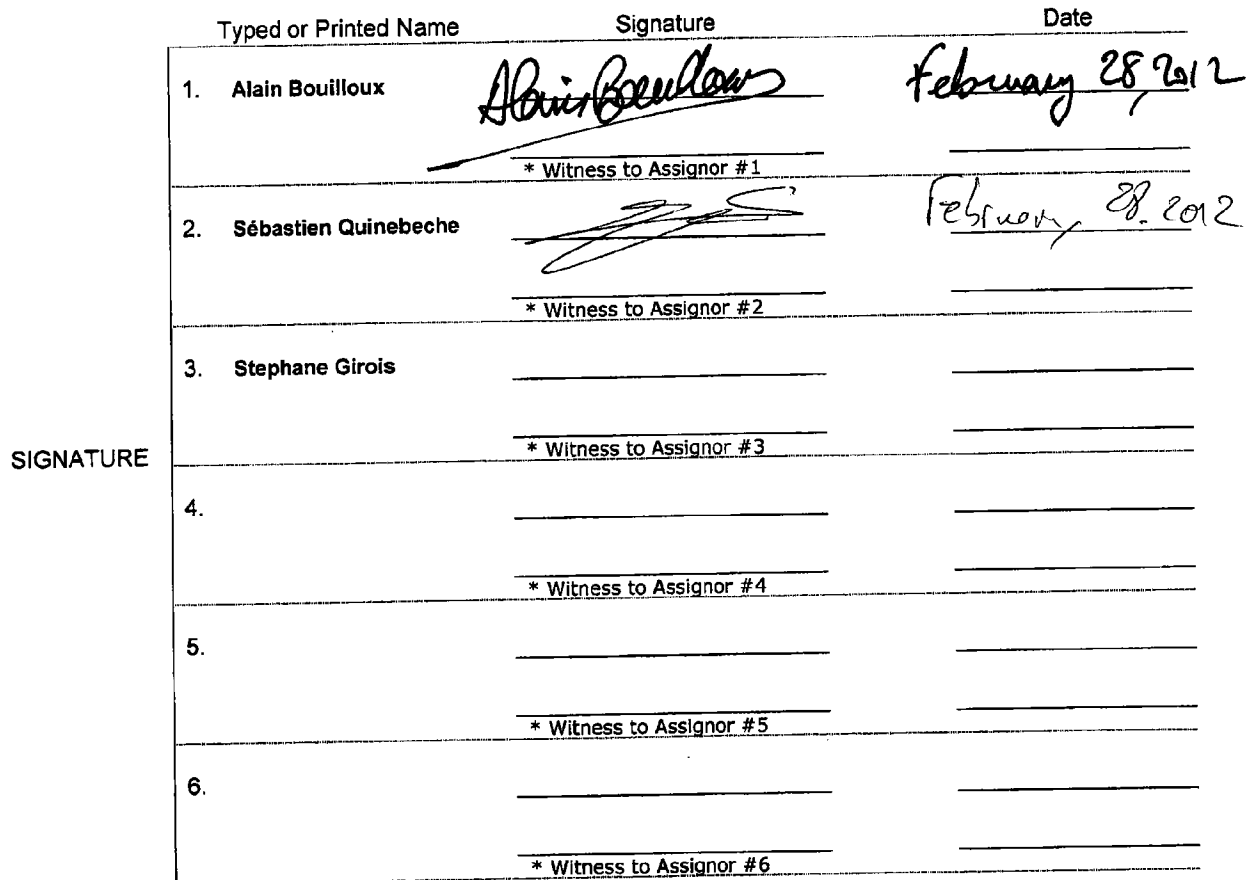 Typed or Printed Name Signature Date
1. Alain Bouilloux Alain Bouilloux February 28, 2012
* Witness to Assignor #1
2. Sébastien Quinebeche February, 28. 2012
* Witness to Assignor #2
3. Stephane Girois
* Witness to Assignor #3
SIGNATURE
4.
* Witness to Assignor #4
5.
* Witness to Assignor #5
6.
* Witness to Assignor #6